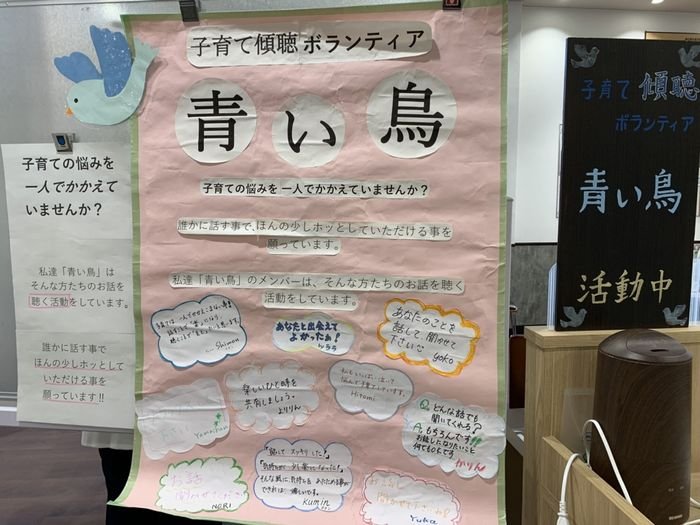 子育て傾聴 ボランティア
青い鳥
子育ての悩みを 一人でかかえていませんか?
誰かに話す事で、ほんの少しホッとしていただける事を
願っています。
私達「青い鳥」のメンバーは、そんな方たちのお話を聴く
活動をしています。
あなたと出会えて
よかったぁ!
by ララ
あなたのことを
話して、聞かせて
下さい
yoko
Shimon
楽しいひと時を
共有しましょう。
よりりん
Hitomi
Q どんな話でも
聞いてくれるの?
A もちろんです!!
お話しになりたいこと
何でもOKです
かりん
お話
聞かせてください
NORI
話して スッキリ した!
Kumin
Yuka
子育ての悩みを
一人でかかえて
いませんか?
私達「青い鳥」は
そんな方たちのお話を
聴く活動をしています。
誰かに話す事で
ほんの少しホッとして
いただける事を
願っています!!
子育て 傾聴
ボランティア
青い鳥
活動中